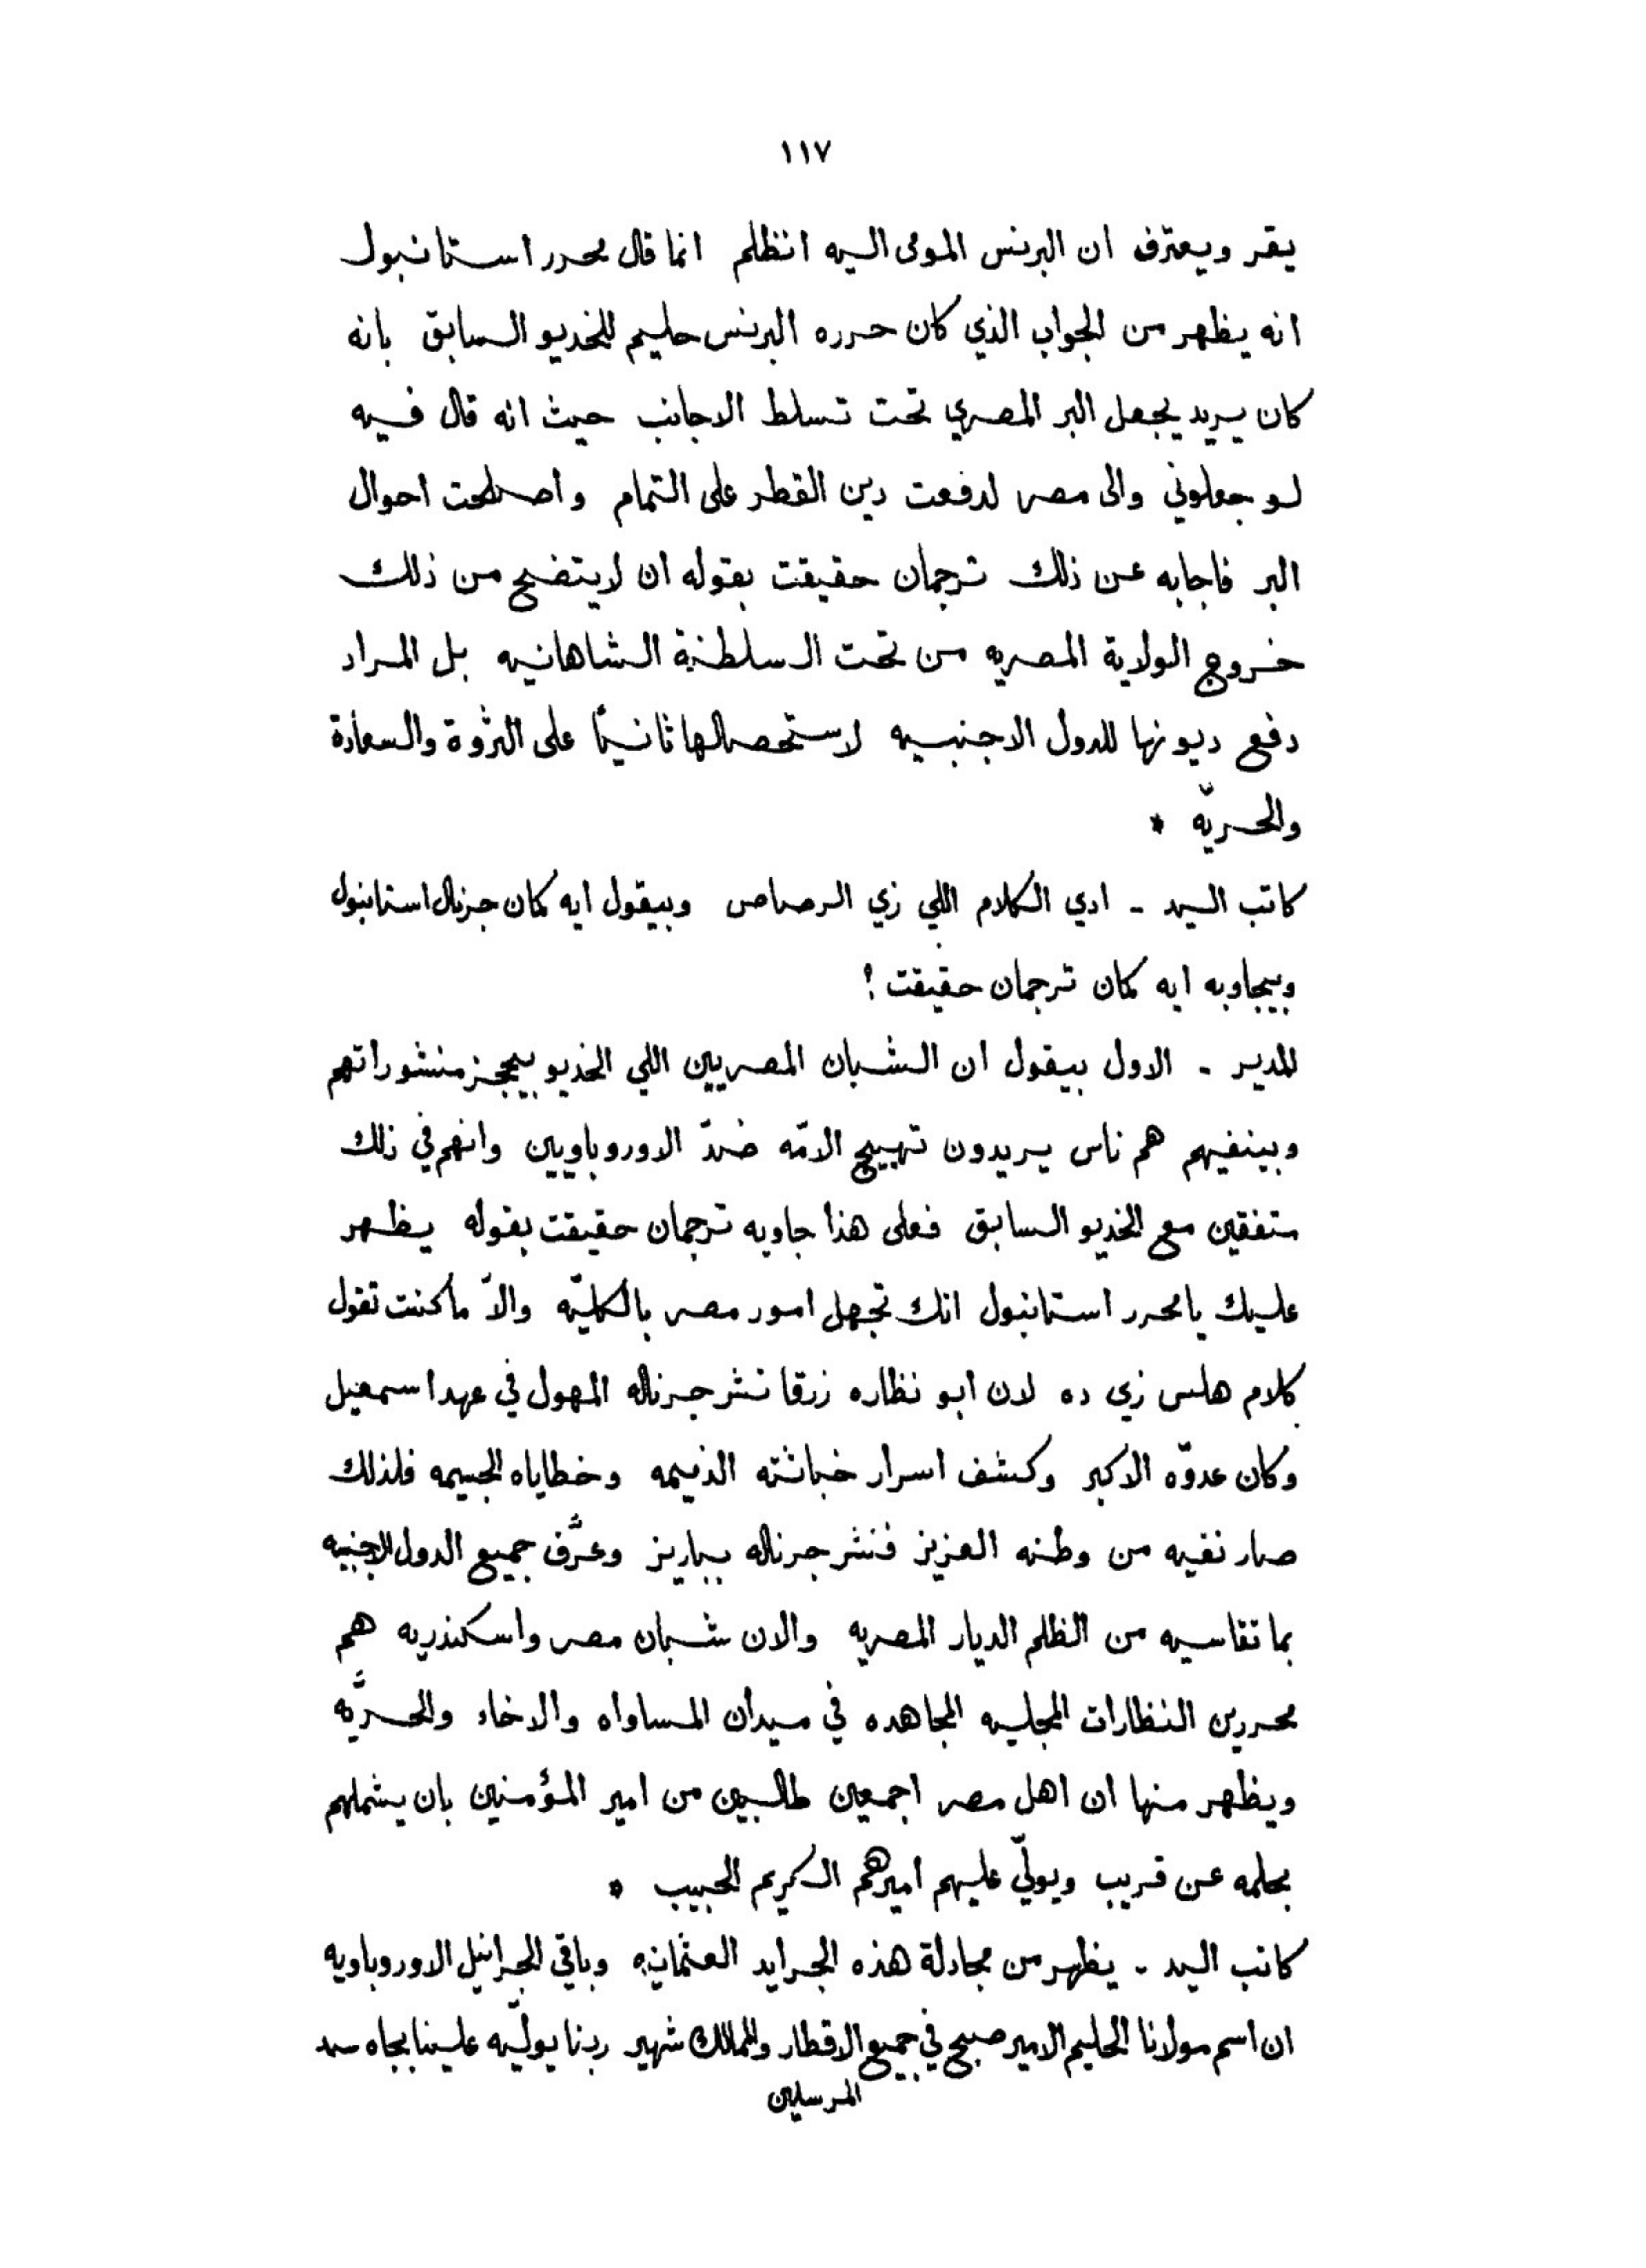 ١١٧
يقر ويعترف ان البرنس المومى اليه انظلم انما قال محرر استانبول
انه يظهر من الجواب الذي كان حرره البرنس حليم للخديو السابق بانه
كان يريد يجعل البر المصري تحت تسلط الاجانب حيث انه قال فيه
لو جعلوني والى مصر لدفعت دين القطر على التمام واصطلحت احوال
البر فاجابه عن ذلك ترجمان حقيقت بقوله ان لايتضح من ذلك
خروج الولاية المصريه من تحت السلطنة الشاهانيه بل المراد
دفع ديونها للدول الاجنبيه لاستحصالها ثانيًا على الثروة والسعادة
والحريّه *
كاتب السيد - ادي الكلام اللي زي الرصاص وبيقول ايه كمان جرنال استانبول
وبيجاوبه ايه كمان ترجمان حقيقت ؟
المدير - الاول بيقول ان الشبان المصريين اللي الخديو بيحجز منشوراتهم
وبينفيهم هم ناس يريدون تهييج الامّه ضدّ الاوروباويين وانهم في ذلك
متفقين مع الخديو السابق فعلى هذا جاوبه ترجمان حقيقت بقوله يظهر
عليك يامحرر استانبول انك تجهل امور مصر بالكليّه والاّ ماكنت تقول
كلام هلس زي ده لان ابو نظاره زرقا نشر جرناله المهول في عهد اسمعيل
وكان عدوّه الاكبر وكشف اسرار خباثته الذميمه وخطاياه الجسيمه فلذلك
صار نفيه من وطنه العزيز فنشر جرناله بباريز وعرَّف جميع الدول الاجنبيه
بما تقاسيه من الظلم الديار المصريه والان شبان مصر واسكندريه هم
محررين النظارات المجليه المجاهده في ميدان المساواه والاخاء والحريَّه
ويظهر منها ان اهل مصر اجمعين طالبين من امير المؤمنين بان يشملهم
بحلمه عن قريب ويولّي عليهم اميرهم الكريم الحبيب *
كاتب السيد - يظهر من مجادلة هذه الجرايد العثمانيه وباقي الجرانيل الاوروباويه
ان اسم مولانا الحليم الامير صبح في جميع الاقطار والممالك شهير ربنا يولّيه علينا بجاه سيد
المرسلين